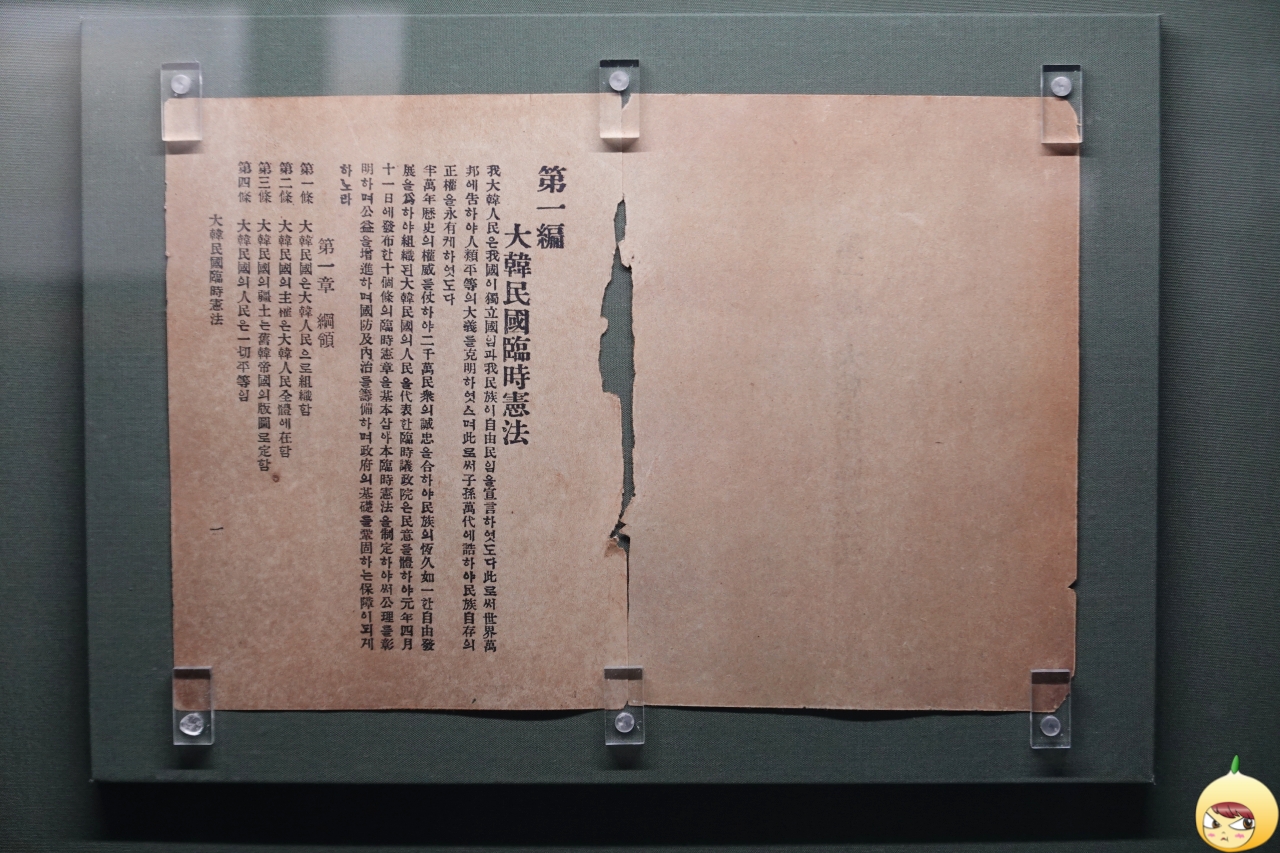 第一編
大韓民國臨時憲法
我大韓人民은我國이獨立國임과我民族이自由民임을宣言하엿도다此로써世界萬
邦에告하야人類平等의大義를克明하엿스며此로써子孫萬代에誥하야民族自存의
正權을永有케하엿도다
半萬年歷史의權威를仗하야二千萬民衆의誠忠을合하야民族의恆久如一한自由發
展을爲하야組織된大韓民國의人民을代表한臨時議政院은民意를體하야元年四月
十一日에發布한十個條의臨時憲章을基本삼아本臨時憲法을制定하야써公理를彰
明하며公益을增進하며國防及內治를籌備하며政府의基礎를鞏固하는保障이되게
하노라
第一章 綱領
第一條 大韓民國은大韓人民으로組織함
第二條 大韓民國의主權은大韓人民全體에在함
第三條 大韓民國의疆土는舊韓帝國의版圖로定함
第四條 大韓民國의人民은一切平等임
大韓民國臨時憲法 一